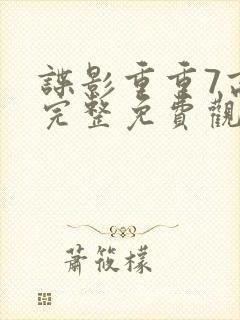 諜影重重7高
完整免費觀
蕭筱檬